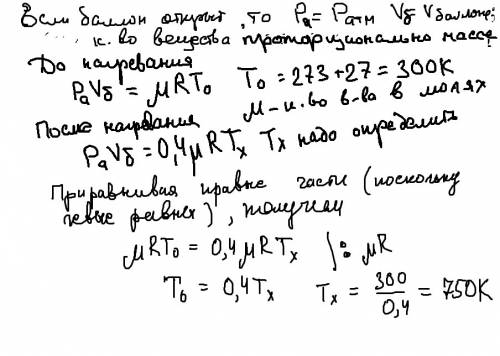 Если баллон открыт, то Pa = Pатм Vб Vбаллоне;
к. во вещества пропорционально массе
До нагревания
PaVб = μRT₀ T₀ = 273+27 = 300К
μ – к-во в-ва в молях
После нагревания
PaVб = 0,4μRTₓ Tₓ надо определить
Приравнивая правые части (поскольку
левые равны), получим
μRT₀ = 0,4μRTₓ | : μR
T₀ = 0,4Tₓ Tₓ = 300/0,4 = 750К